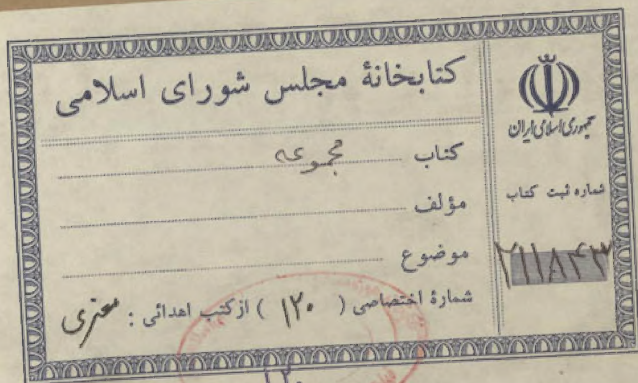 کتابخانهٔ مجلس شورای اسلامی
کتاب مجموعه
مؤلف
موضوع
شمارهٔ اختصاصی ( ۱۲۰ ) از کتب اهدائی :
جمهوری اسلامی ایران
شماره ثبت کتاب
۲۱۱۸۴۳
۱۲۰